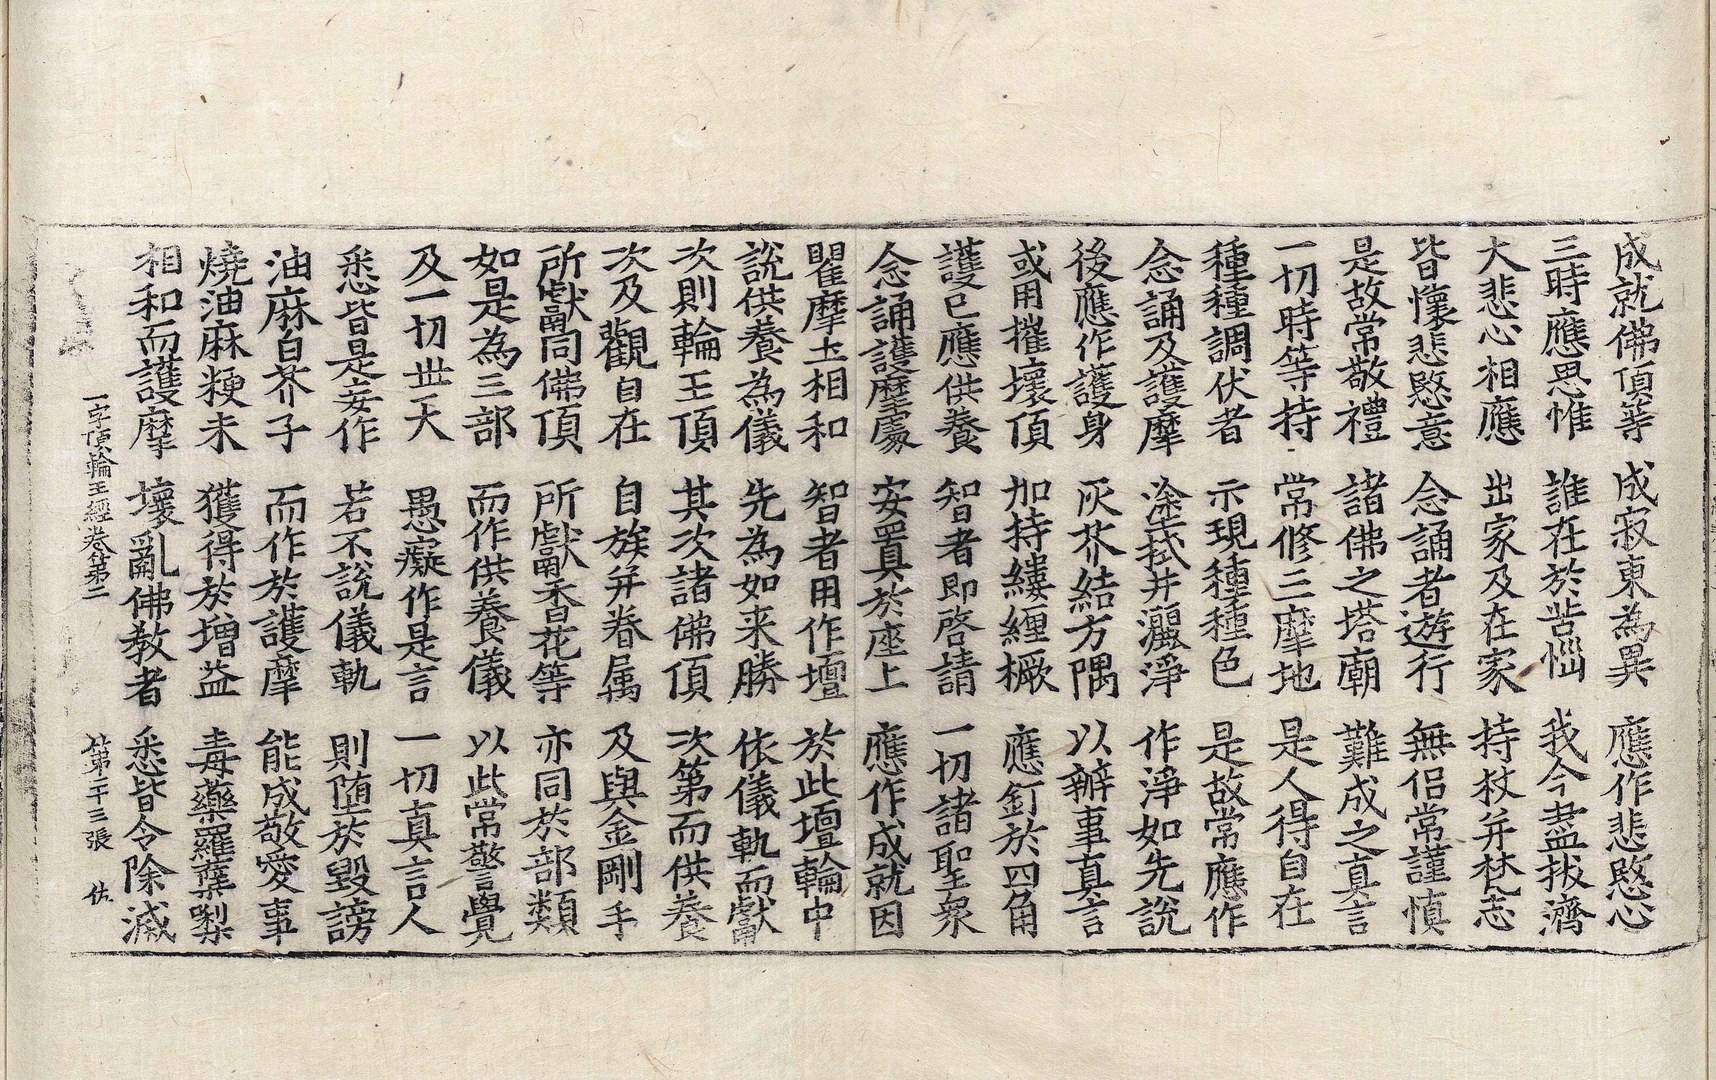 成就佛頂等 成寂東為異 應作悲愍心
三時應思惟 誰在於苦惱 我今盡拔濟
大悲心相應 出家及在家 持杖并梵志
皆懷悲愍意 念誦者遊行 無侶常謹慎
是故常敬禮 諸佛之塔廟 難成之真言
一切時等持 常修三摩地 是人得自在
種種調伏者 示現種種色 是故常應作
念誦及護摩 塗拭并灑淨 作淨如先說
後應作護身 灰芥結方隅 以辦事真言
或用摧壞頂 加持縷纏橛 應釘於四角
護已應供養 智者即啓請 一切諸聖衆
念誦護摩處 安置於座上 應作成就因
瞿摩土相和 智者用作壇 於此壇輪中
說供養為儀 先為如来勝 依儀軌而獻
次則輪王頂 其次諸佛頂 次第而供養
次及觀自在 自族并眷属 及與金剛手
所獻同佛頂 所獻香花等 亦同於部類
如是為三部 而作供養儀 以此常警覺
及一切世天 愚癡作是言 一切真言人
悉皆是妄作 若不說儀軌 則堕於毀謗
油麻白芥子 而作於護摩 能成敬愛事
燒油麻粳米 獲得於增益 毒藥羅蘗梨
相和而護摩 壞亂佛教者 悉皆令除滅
一字頂輪王經卷第二 第十三張 佐